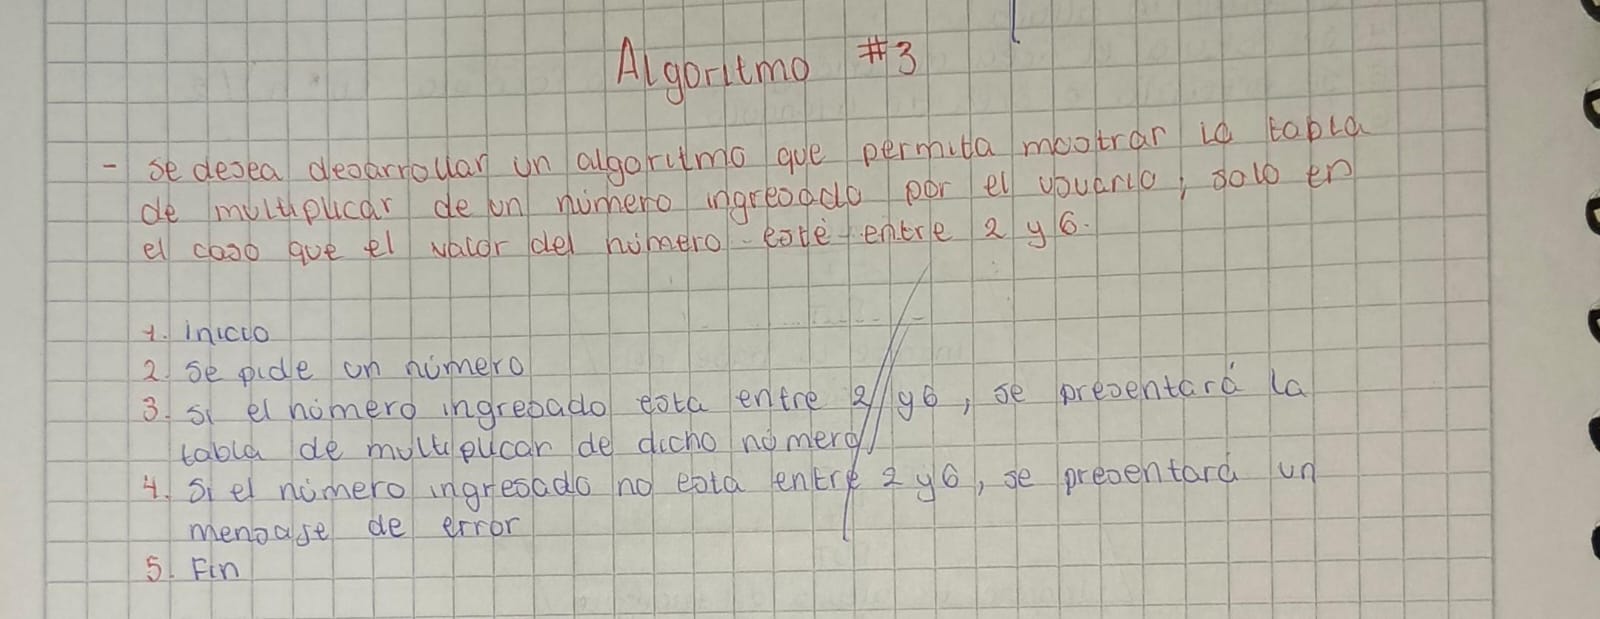 Algoritmo #3
- se desea desarrollar un algoritmo que permita mostrar la tabla
de multiplicar de un número ingresado por el usuario, solo en
el caso que el valor del número esté entre 2 y 6.
1. inicio
2. se pide un número
3. si el número ingresado esta entre 2 y 6, se presentará la
tabla de multiplicar de dicho número
4. Si el número ingresado no esta entre 2 y 6, se presentará un
mensaje de error
5. Fin